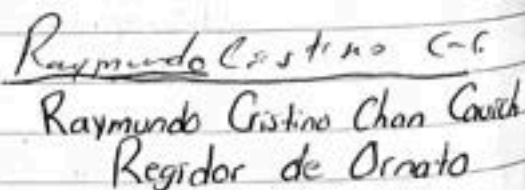 Raymundo Cristino C-C.
Raymundo Cristino Chan Cauich
Regidor de Ornato